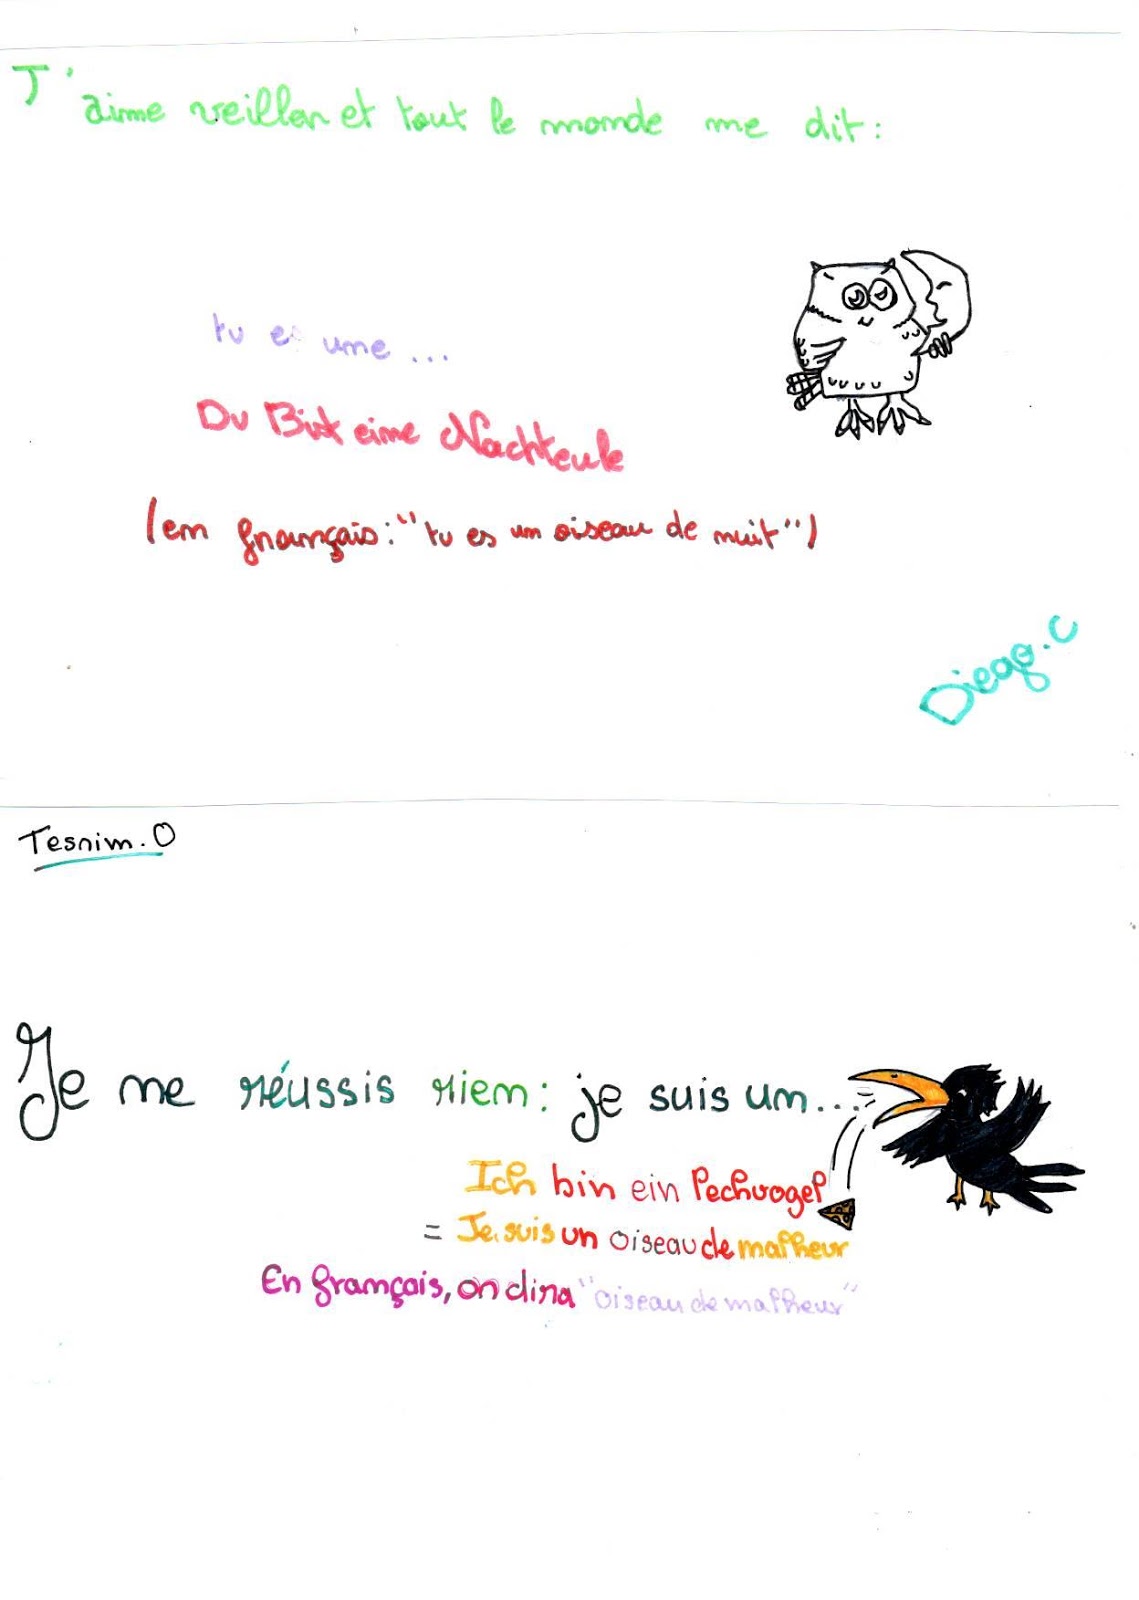 J'aime veiller et tout le monde me dit :
tu es une ...
Du Bist eine Nachteule
(en français : "tu es un oiseau de nuit")
Diego.C
Tesnim.O
Je ne réussis rien : je suis un...
Ich bin ein Pechvogel
= Je suis un oiseau de malheur
En français, on dira "oiseau de malheur"